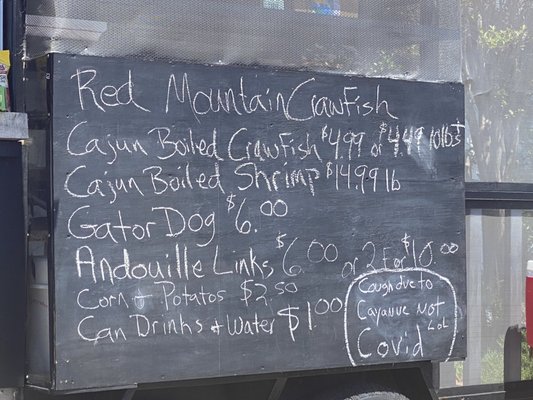 Red Mountain Crawfish
Cajun Boiled Crawfish $4.99 or $4.49 10lbs+
Cajun Boiled Shrimp $14.99 lb
Gator Dog $6.00
Andouille Links $6.00 or 2 For $10.00
Corn + Potatos $2.50
Can Drinks + Water $1.00
Cough due to
Cayanne not
Covid LoL